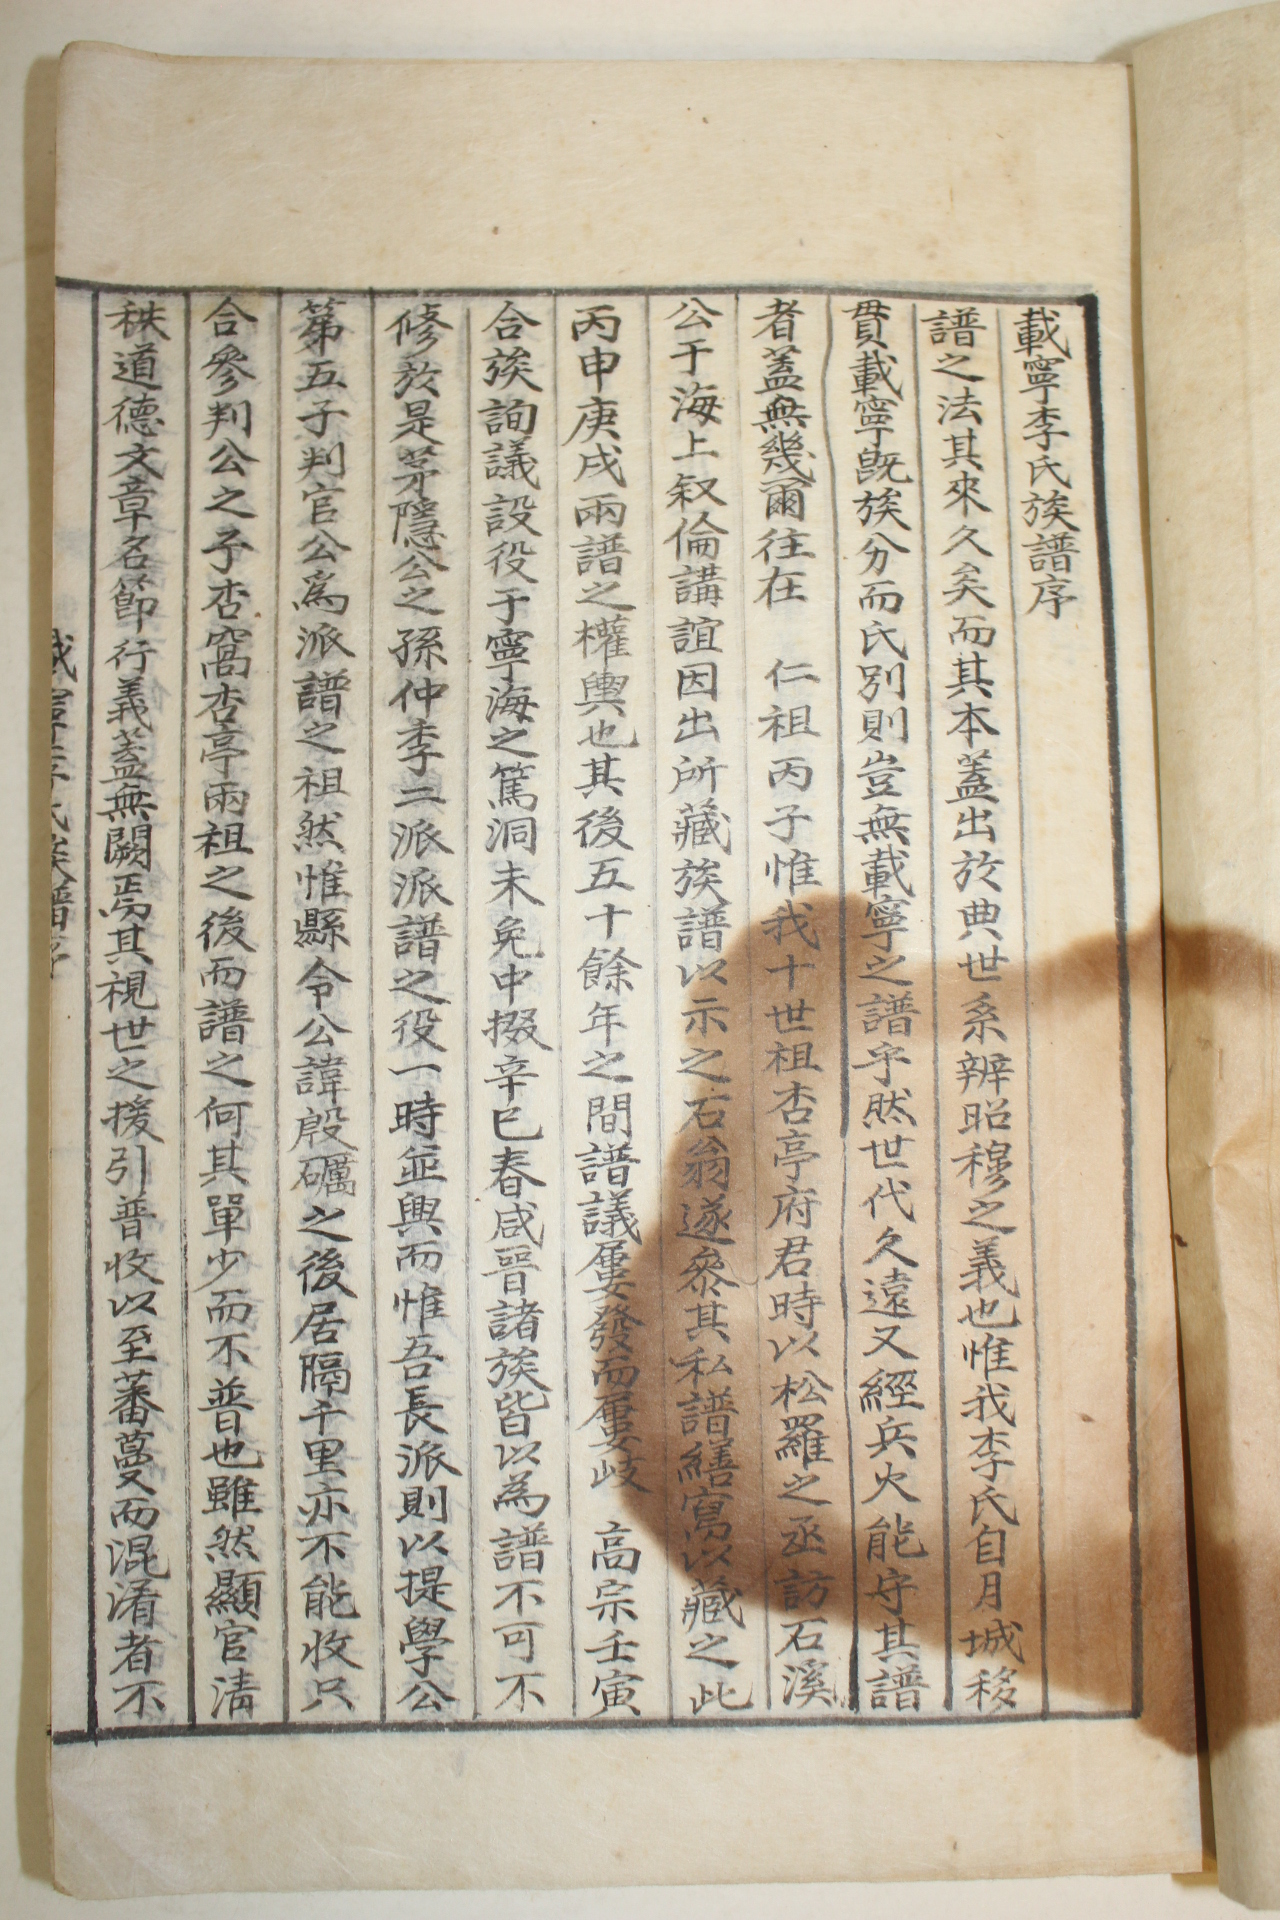 載寧李氏族譜序
譜之法其來久矣而其本蓋出於典世系辨昭穆之義也惟我李氏自月城移
貫載寧旣族分而氏別則豈無載寧之譜乎然世代久遠又經兵火能守其譜
者蓋無幾爾往在 仁祖丙子惟我十世祖杏亭府君時以松羅之丞訪石溪
公于海上叙倫講誼因出所藏族譜以示之石翁遂叅其私譜繕寫以藏之此
丙申庚戌兩譜之權輿也其後五十餘年之間譜議屢發而屢岐 高宗壬寅
合族詢議設役于寧海之篤洞未免中掇辛巳春咸晉諸族皆以為譜不可不
修於是茅隱公之孫仲季二派派譜之役一時並興而惟吾長派則以提學公
第五子判官公爲派譜之祖然惟縣令公諱殷礪之後居隔千里亦不能收只
合參判公之子杏窩杏亭兩祖之後而譜之何其單少而不普也雖然顯官淸
秩道德文章名節行義蓋無闕焉其視世之援引普收以至蕃蔓而混淆者不
載寧李氏族譜序